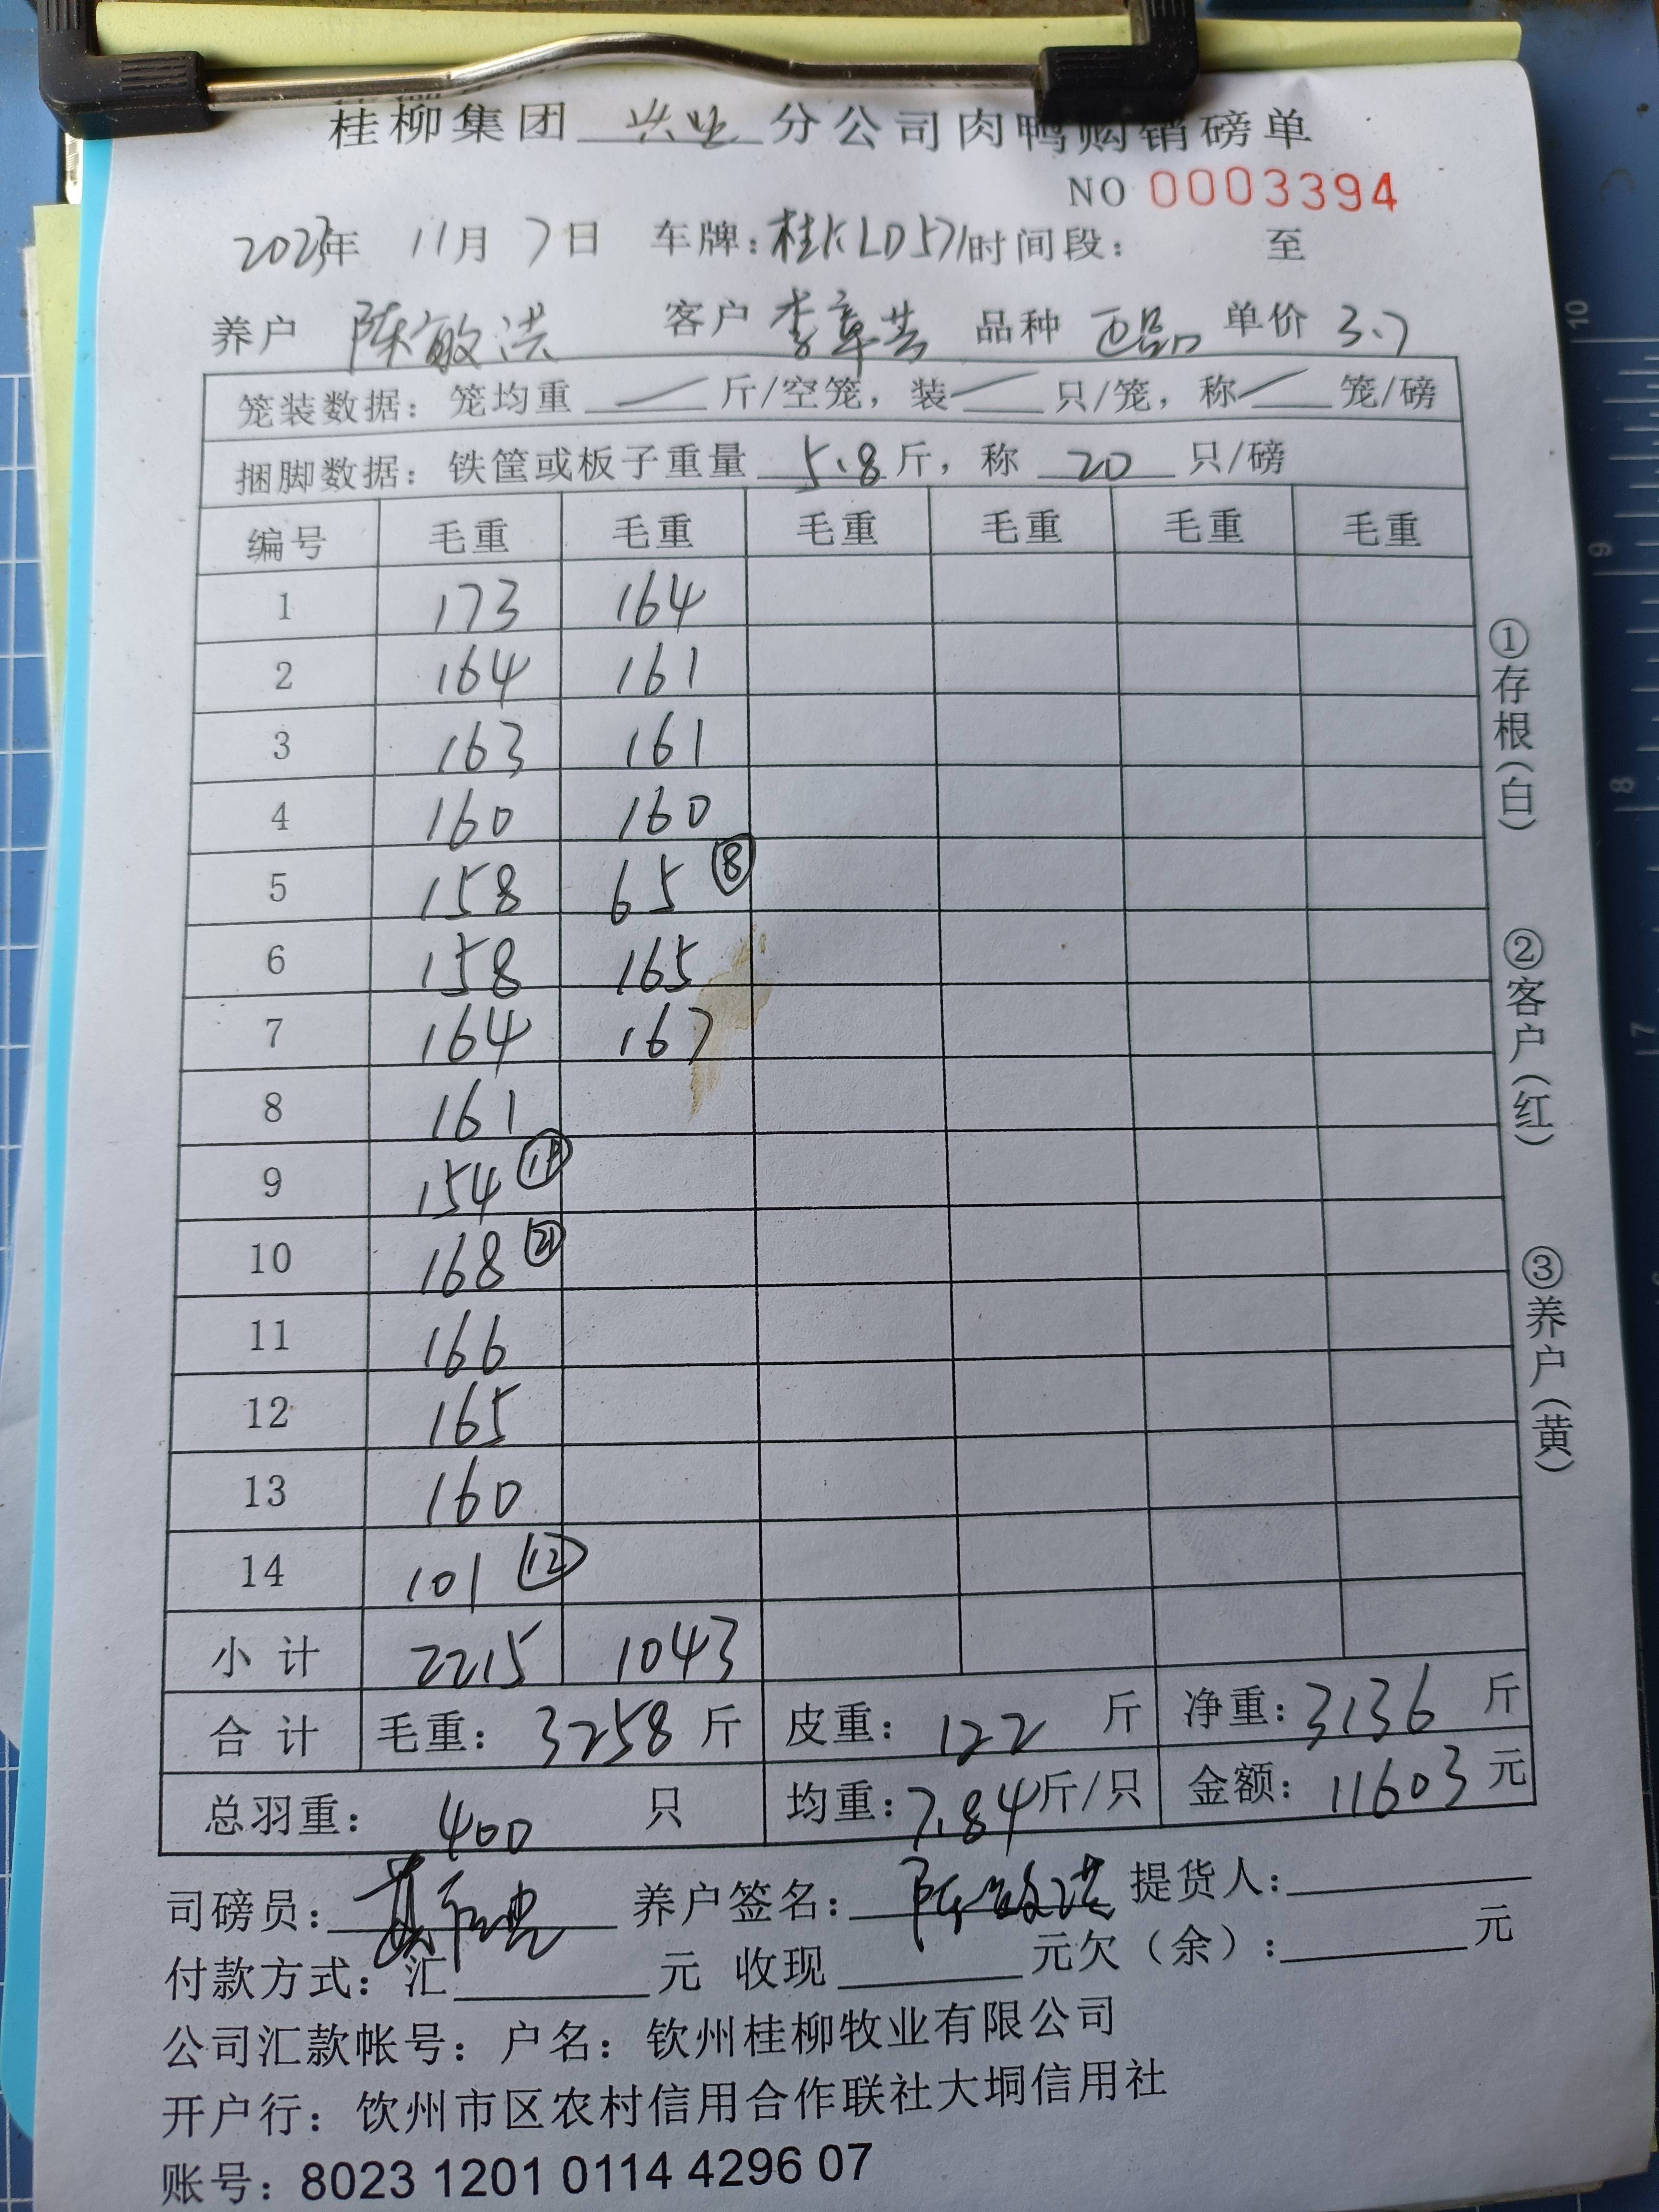 桂柳集团 兴业 分公司肉鸭购销磅单
NO 0003394
2023年 11月 7日 车牌:桂KLD571时间段: 至
养户 陈敏洪 客户 李章芸 品种 正品 单价 3.7
笼装数据: 笼均重 / 斤/空笼, 装 / 只/笼, 称 / 笼/磅
捆脚数据: 铁筐或板子重量 5.8斤, 称 20 只/磅
编号 毛重 毛重 毛重 毛重 毛重 毛重
1 173 164
2 164 161
3 163 161
4 160 160
5 158 65 ⑧
6 158 165
7 164 167
8 161
9 154
10 168 ㉑
11 166
12 165
13 160
14 101 ⑫
小计 2215 1043
合计 毛重: 3258 斤 皮重: 122 斤 净重: 3136 斤
总羽重: 400 只 均重: 7.84斤/只 金额: 11603 元
司磅员: 养户签名: 陈敏洪 提货人:
付款方式: 汇 元 收现 元欠(余): 元
公司汇款帐号: 户名: 钦州桂柳牧业有限公司
开户行: 钦州市区农村信用合作联社大垌信用社
账号: 8023 1201 0114 4296 07
①存根(白)
②客户(红)
③养户(黄)
10
9
8
7